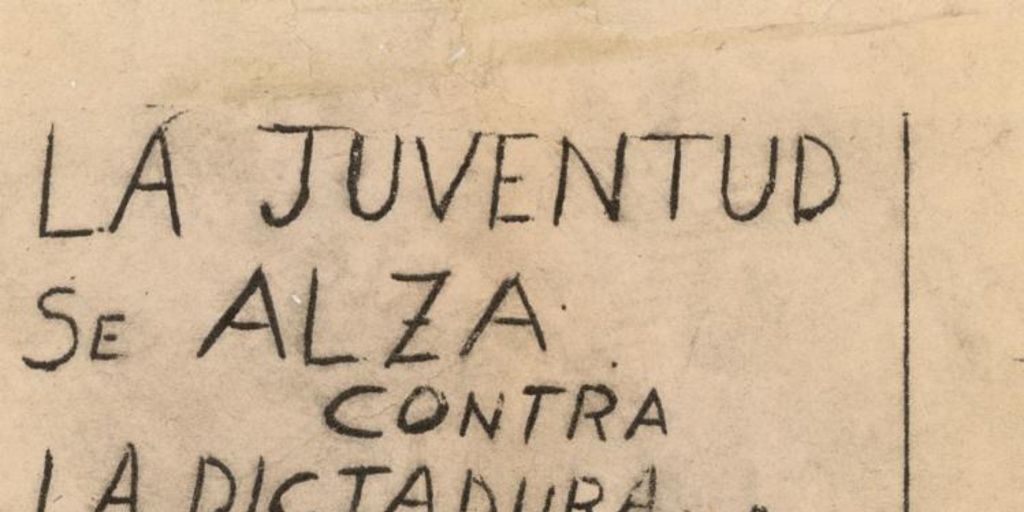 LA JUVENTUD
SE ALZA
CONTRA
LA DICTADURA